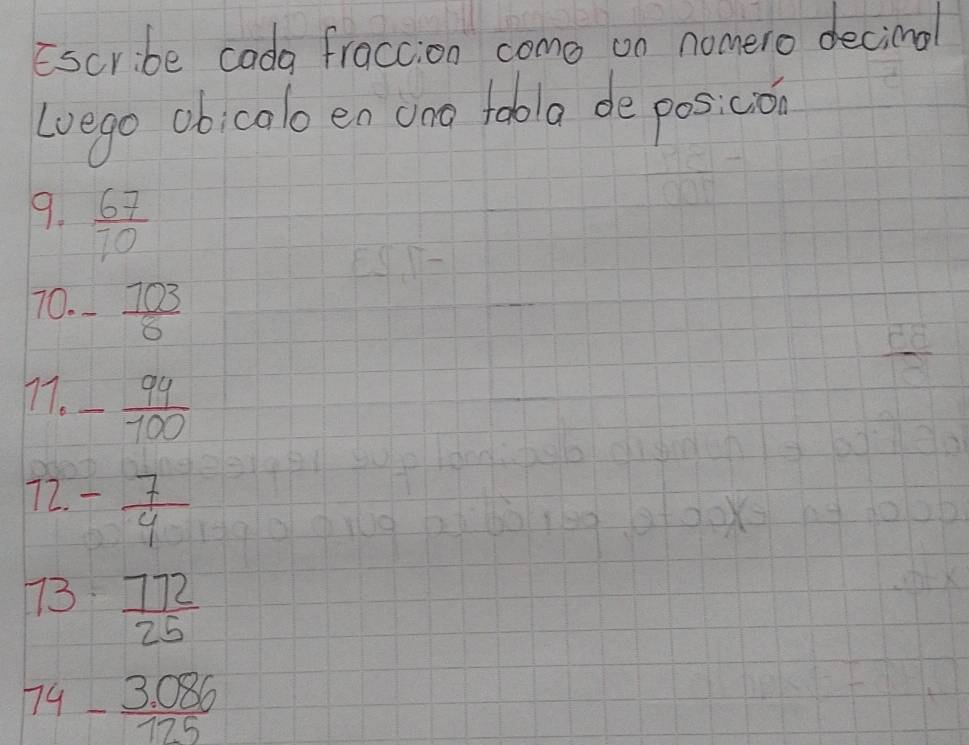 Escribe cada fraccion como un nomero decimal
Luego obicalo en una tabla de posición
9. 67/10
10.- 103/8
11.- 94/100
12.- 7/4
13- 112/25
14- 3.086/125